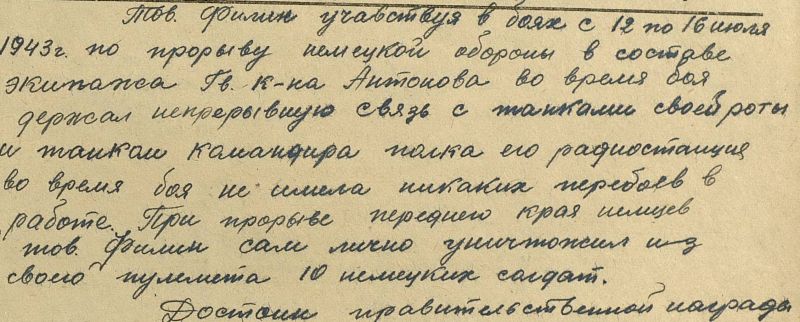 Тов. Филин учавствуя в боях с 12 по 16 июля
1943 г. по прорыву немецкой обороны в составе
экипажа Гв. к-на Антонова во время боя
держал непрерывную связь с танками своей роты
и танком командира полка его радиостанция
во время боя не имела никаких перебоев в
работе. При прорыве переднего края немцев
тов. Филин сам лично уничтожил из
своего пулемета 10 немецких солдат.
Достоин правительственной награды